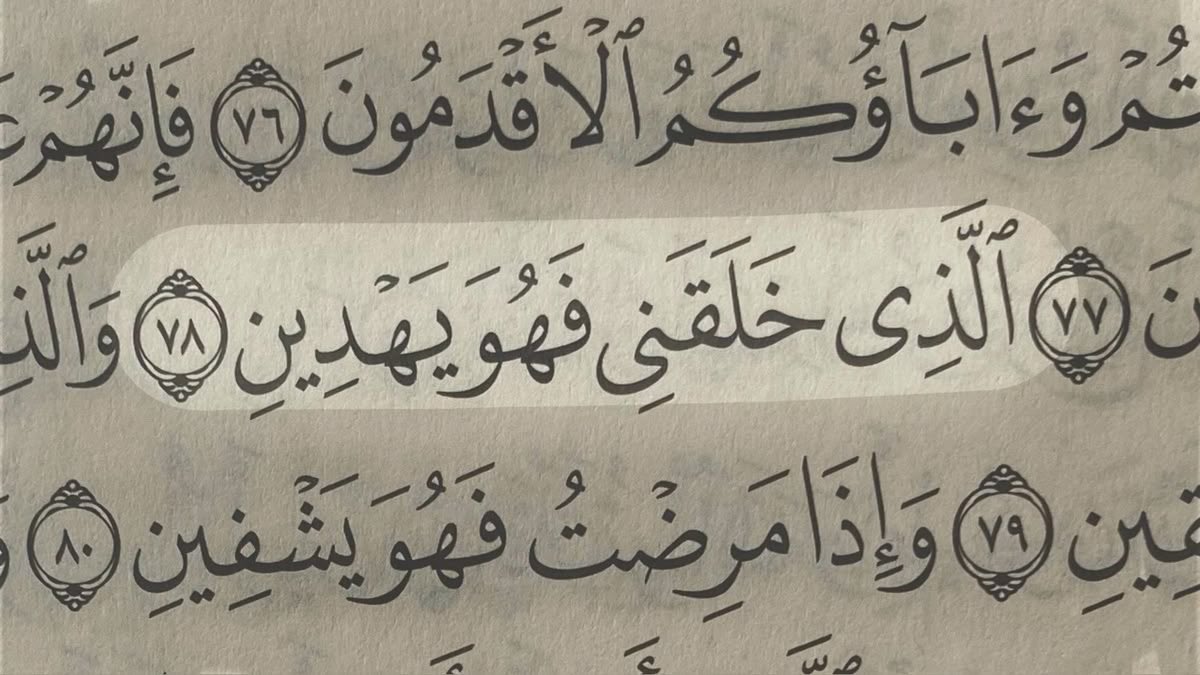 تُمْ وَءَابَآؤُكُمُ ٱلْأَقْدَمُونَ ٧٦ فَإِنَّهُمْ
نَ ٧٧ ٱلَّذِى خَلَقَنِى فَهُوَ يَهْدِينِ ٧٨ وَٱلَّذِ
قِينِ ٧٩ وَإِذَا مَرِضْتُ فَهُوَ يَشْفِينِ ٨٠